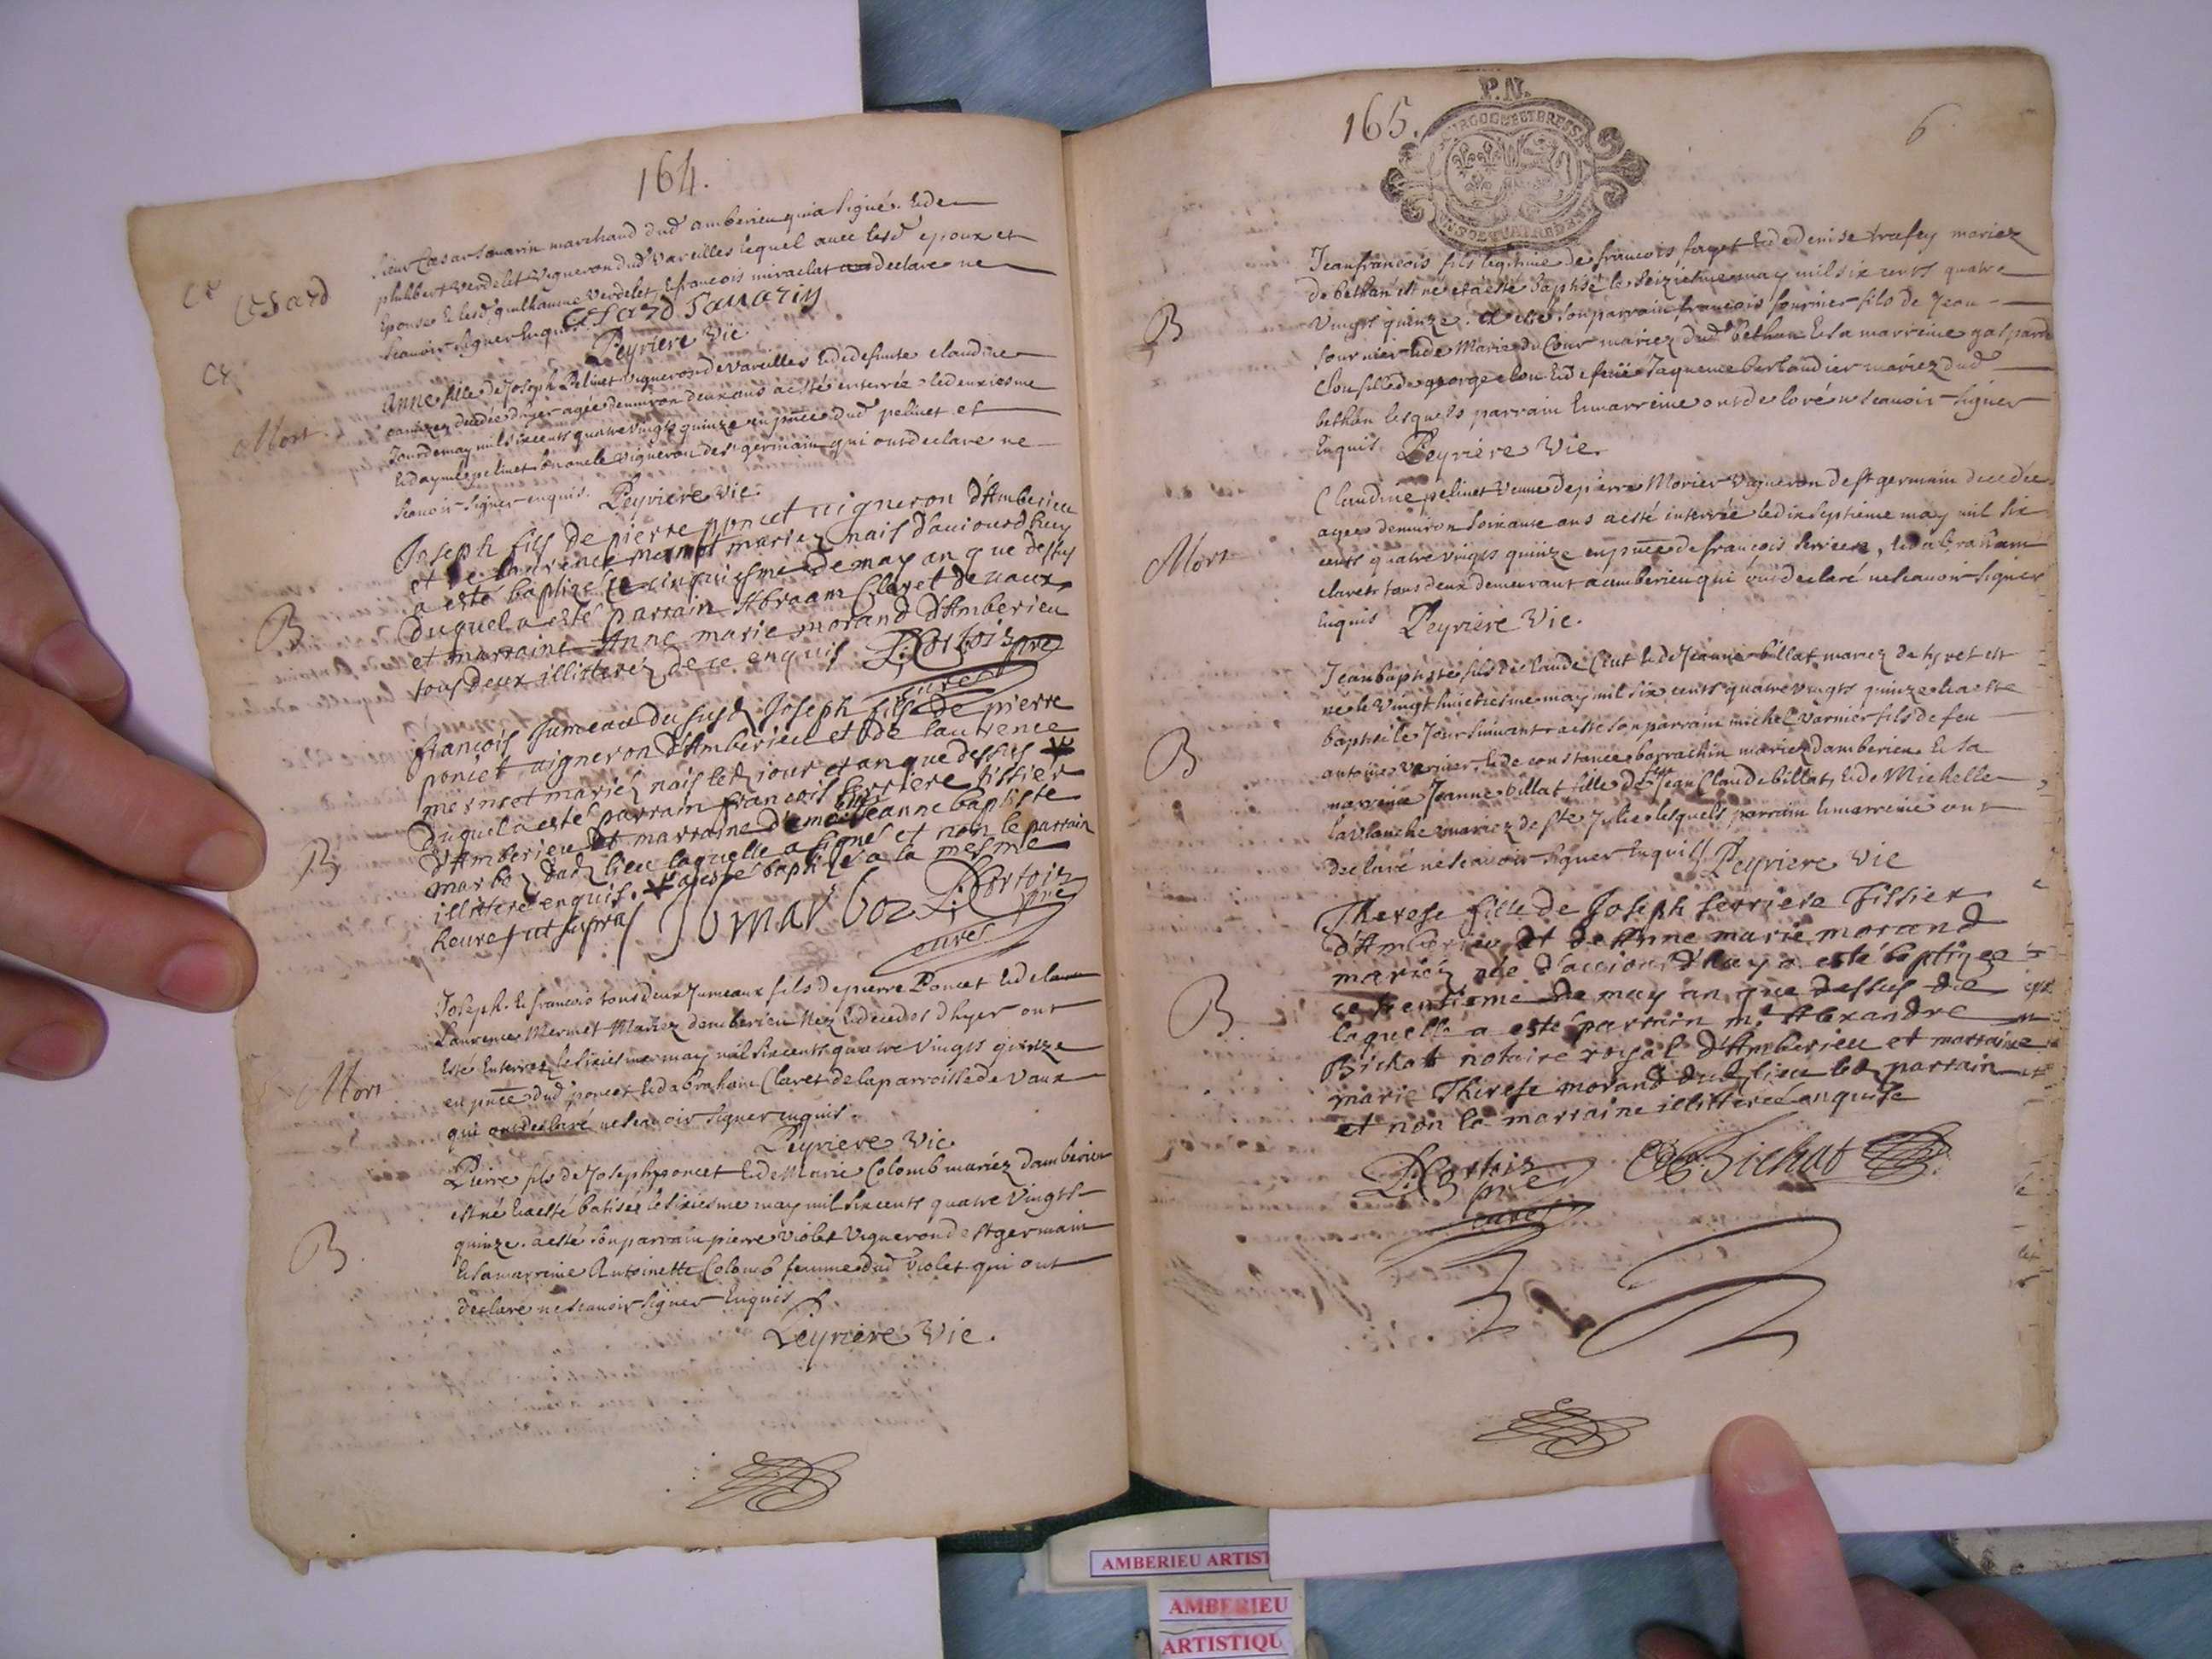 164.
Sieur Cæsar Sauarin marchand dud amberieu qui a signé. Et de
philibert Verdelet Vigneron dud Vareilles lequel auec lesd epoux et
Epouse et lesd guillaume Verdelet, et francois miraclat declare ne
scauoir signer Enquis
Cesard
Cesard Sauarin
Peyriere Vic.
Anne fille de Joseph Pelinet vigneron de Vareilles et de defunte claudine
decedée d'hyer agée denuiron deux ans a esté enterrée le deuxiesme
Jour de may mil six cents quatre vingts quinze en pnce dud pelinet et
Mort
Et daymé pelinet son oncle vigneron de st germain qui ont declare ne
scauoir signer enquis. Peyriere Vic.
Joseph fils de pierre poncet uigneron d'Amberieu
et de Laurence mermet mariez nais d'auiourdhuy
a esté baptizé ce cinquiesme de may an que dessus
B
duquel a esté parrain Abraam Claret de uaux
et marraine Anne marie morand d'Amberieu
tous deux illitterez de ce enquis
pre
curé
francois Jumeau du susd Joseph fils de pierre
poncet uigneron d'Amberieu et de laurence
mermet mariez nais led iour et an que dessus
duquel a esté parrain francois serriere tissier
B
d'Amberieu et marraine demoiselle Jeanne baptiste
marboz dud lieu laquelle a signé et non le parrain
illitteré enquis. a esté baptizé a la mesme
heure ut supra J b marboz
pre
curé
Joseph et francois tous deux Jumeaux fils de pierre Poncet et de
Laurence Mermet Mariez damberieu Nez et decedes dhyer ont
Esté Enterrez le sixiesme may mil six cents quatre vingts quinze
Mort
en pnce dud poncet et dabraham Claret de la parroisse de Vaux
qui ont declaré ne scauoir signer enquis.
Peyriere Vic
Pierre fils de Joseph poncet et de Marie Colomb mariez damberieu
est né et a esté batisé le sixiesme may mil six cents quatre Vingts
quinze. a esté son parrain pierre Violet Vigneron de st germain
B.
et sa marreine Antoinette Colomb femme dud Violet qui ont
declaré ne scauoir signer Enquis
Peyriere Vic.
165.
P.N.
6
Jean francois fils legitime de francois faget et de denise trafey mariez
de bethan est né et a esté baptisé le seizieme may mil six cents quatre
B
Vingts quinze. a esté son parrain francois fournier fils de Jean
fournier et de Marie du Cour mariez dud bethan et sa marreine gasparde
Clou fille de george clou et de feüe Jaqueme bertaudier mariez dud
bethan lesquels parrain et marreine ont declaré ne scauoir signer
Enquis Peyriere Vic.
Claudine pelinet Veuue de pierre Morier Vigneron de st germain decedée
agee denuiron soixante ans a esté interrée le dix septieme may mil six
Mort
cents quatre vingts quinze en pnce de francois serriere, et dabraham
claret tous deux demeurant a amberieu qui ont declaré ne scauoir signer
Enquis Peyriere Vic.
Jean baptiste fils de claude Ceut et de Jeanne billat mariez de est
né le Vingt huictiesme may mil six cents quatre vingts quinze et a esté
baptisé le Jour suiuant a esté son parrain michel Varnier fils de feu
B
antoine varnier et de constance barrachin mariez damberieu et sa
marreine Jeanne billat fille de feu Jean Claude billat, et de Michelle
la blanche mariez de ste Julie lesquels parrain et marreine ont
declaré ne scauoir signer Enquis Peyriere Vic
Therese fille de Joseph serriere Tissier
d'Amberieu et de Anne marie morand
mariez née d'auiourd'huy a esté baptizee
ce trentieme de may an que dessus de
B.
laquelle a esté parrain mr Alexandre
Bichat notaire royal d'Amberieu et marraine
marie Therese morand dud lieu led parrain
et non la marraine illitterée enquise
pre
curé
Bichat
AMBERIEU ARTIST
AMBERIEU
ARTISTIQU